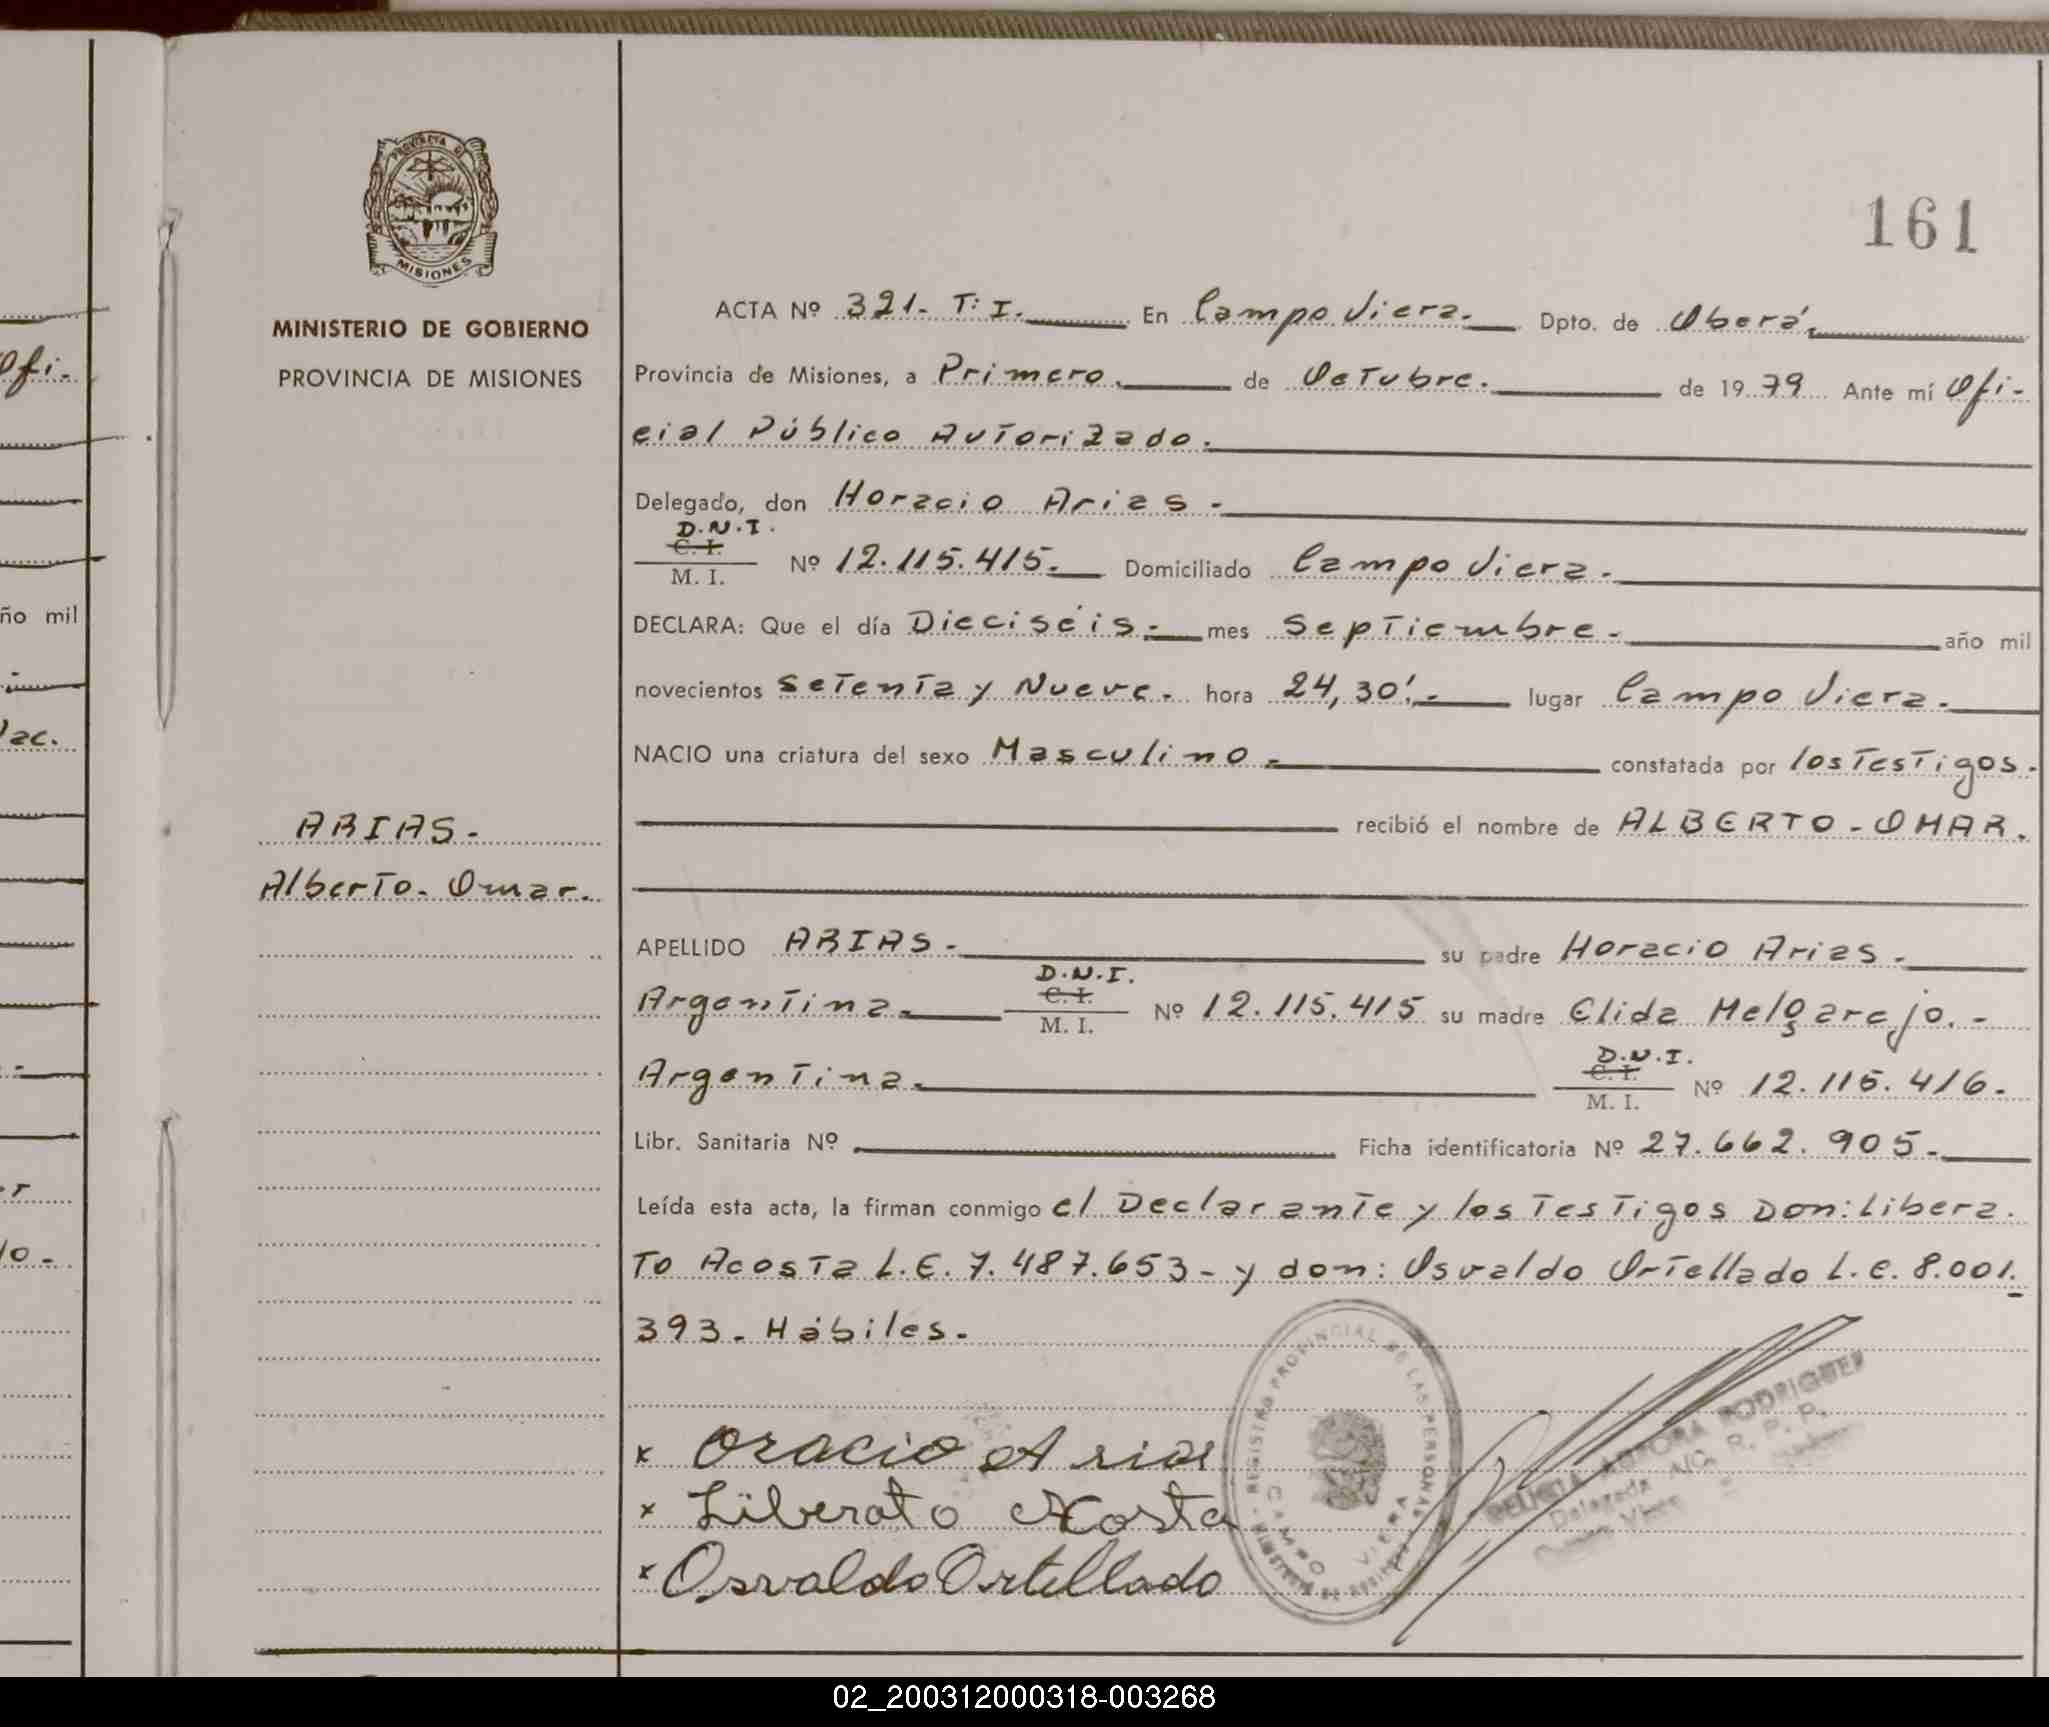 161
PROVINCIA DE
MISIONES
MINISTERIO DE GOBIERNO
PROVINCIA DE MISIONES
ARIAS.-
Alberto. Omar.
ACTA Nº 321. T: I. En Campo Viera. Dpto. de Oberá.
Provincia de Misiones, a Primero. de Octubre. de 1979 Ante mí Ofi-
cial Público Autorizado.
Delegado, don Horacio Arias.
D.N.I.
C. I.
M. I. Nº 12.115.415. Domiciliado Campo Viera.
DECLARA: Que el día Dieciséis. mes Septiembre. año mil
novecientos Setenta y Nueve. hora 24,30'. lugar Campo Viera.
NACIO una criatura del sexo Masculino. constatada por los Testigos.
recibió el nombre de ALBERTO-OMAR.
APELLIDO ARIAS. su padre Horacio Arias.
D.N.I.
C. I.
Argentina. M. I. Nº 12.115.415 su madre Elida Melgarejo.-
D.N.I.
C. I.
Argentina. M. I. Nº 12.115.416.
Libr. Sanitaria Nº Ficha identificatoria Nº 27.662.905.
Leída esta acta, la firman conmigo el Declarante y los Testigos Don: Libera.
To Acosta L.E. 7.487.653- y don: Osvaldo Ortellado L.E. 8.001.
393. Hábiles.
x Oracio Arias
x Liberato Acosta
x Osvaldo Ortellado
REGISTRO PROVINCIAL DE LAS PERSONAS
CAMPO VIERA
AURORA RODRIGUEZ
Delegada A/C. R. P. P.
Campo Viera
ño mil
Ofi.
02_200312000318-003268